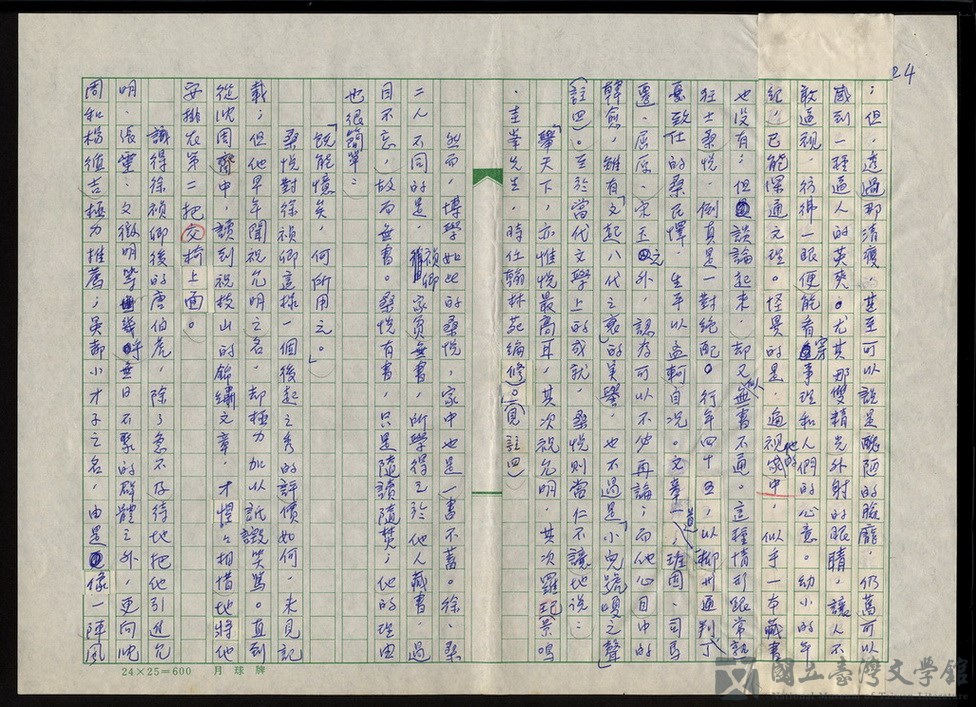 24
；但，透過那清癯，甚至可以說是醜陋的臉龐，仍舊可以
感到一種逼人的英爽。尤其那雙精光外射的眼睛，讓人不
敢逼視，彷彿一眼便能看穿事理和人們的心意。幼小的年
紀，已能深通元理。怪異的是，遍視他的家中，似乎一本藏書
也沒有；但談論起來，却又似無書不通。這種情形跟常熟
狂士桑悅，倒真是一對絕配。行年四十五，以柳州通判丁
憂致仕的桑民懌，生平以孟軻自況。文章一道，班固、司馬
遷、屈原、宋玉之外，認為可以不必再論；而他心目中的
韓愈，雖有「文起八代之衰」的美譽，也不過是「小兒號嗄之聲」
（註四）。至於當代文學上的成就，桑悅則當仁不讓地說：
「舉天下，亦惟悅最高耳，其次祝允明，其次羅玘（景鳴
，圭峯先生，時任翰林苑編修）。」（見註四）
然而，博學如此的桑悅，家中也是一書不蓄。徐、桑
二人不同的是，禎卿家貧無書，所學得之於他人藏書，過
目不忘，故而無書。桑悅有書，只是隨讀隨焚；他的理由
也很簡單：
「既能憶矣，何所用之。」
桑悅對徐禎卿這樣一個後起之秀的評價如何，未見記
載；但他早年聞祝允明之名，却極力加以詆譭笑罵。直到
從沈周齋中，讀到祝枝山的錦繡文章，才惺惺相惜地將他
安排在第二把交椅上面。
識得徐禎卿後的唐伯虎，除了急不及待地把他引進允
明、張靈、文徵明等幾乎無日不聚的群體之外，更向沈
周和楊循吉極力推薦；吳郡小才子之名，由是像一陣風
24×25=600 月球牌
國立臺灣文學館
National Museum of Taiwan Literature